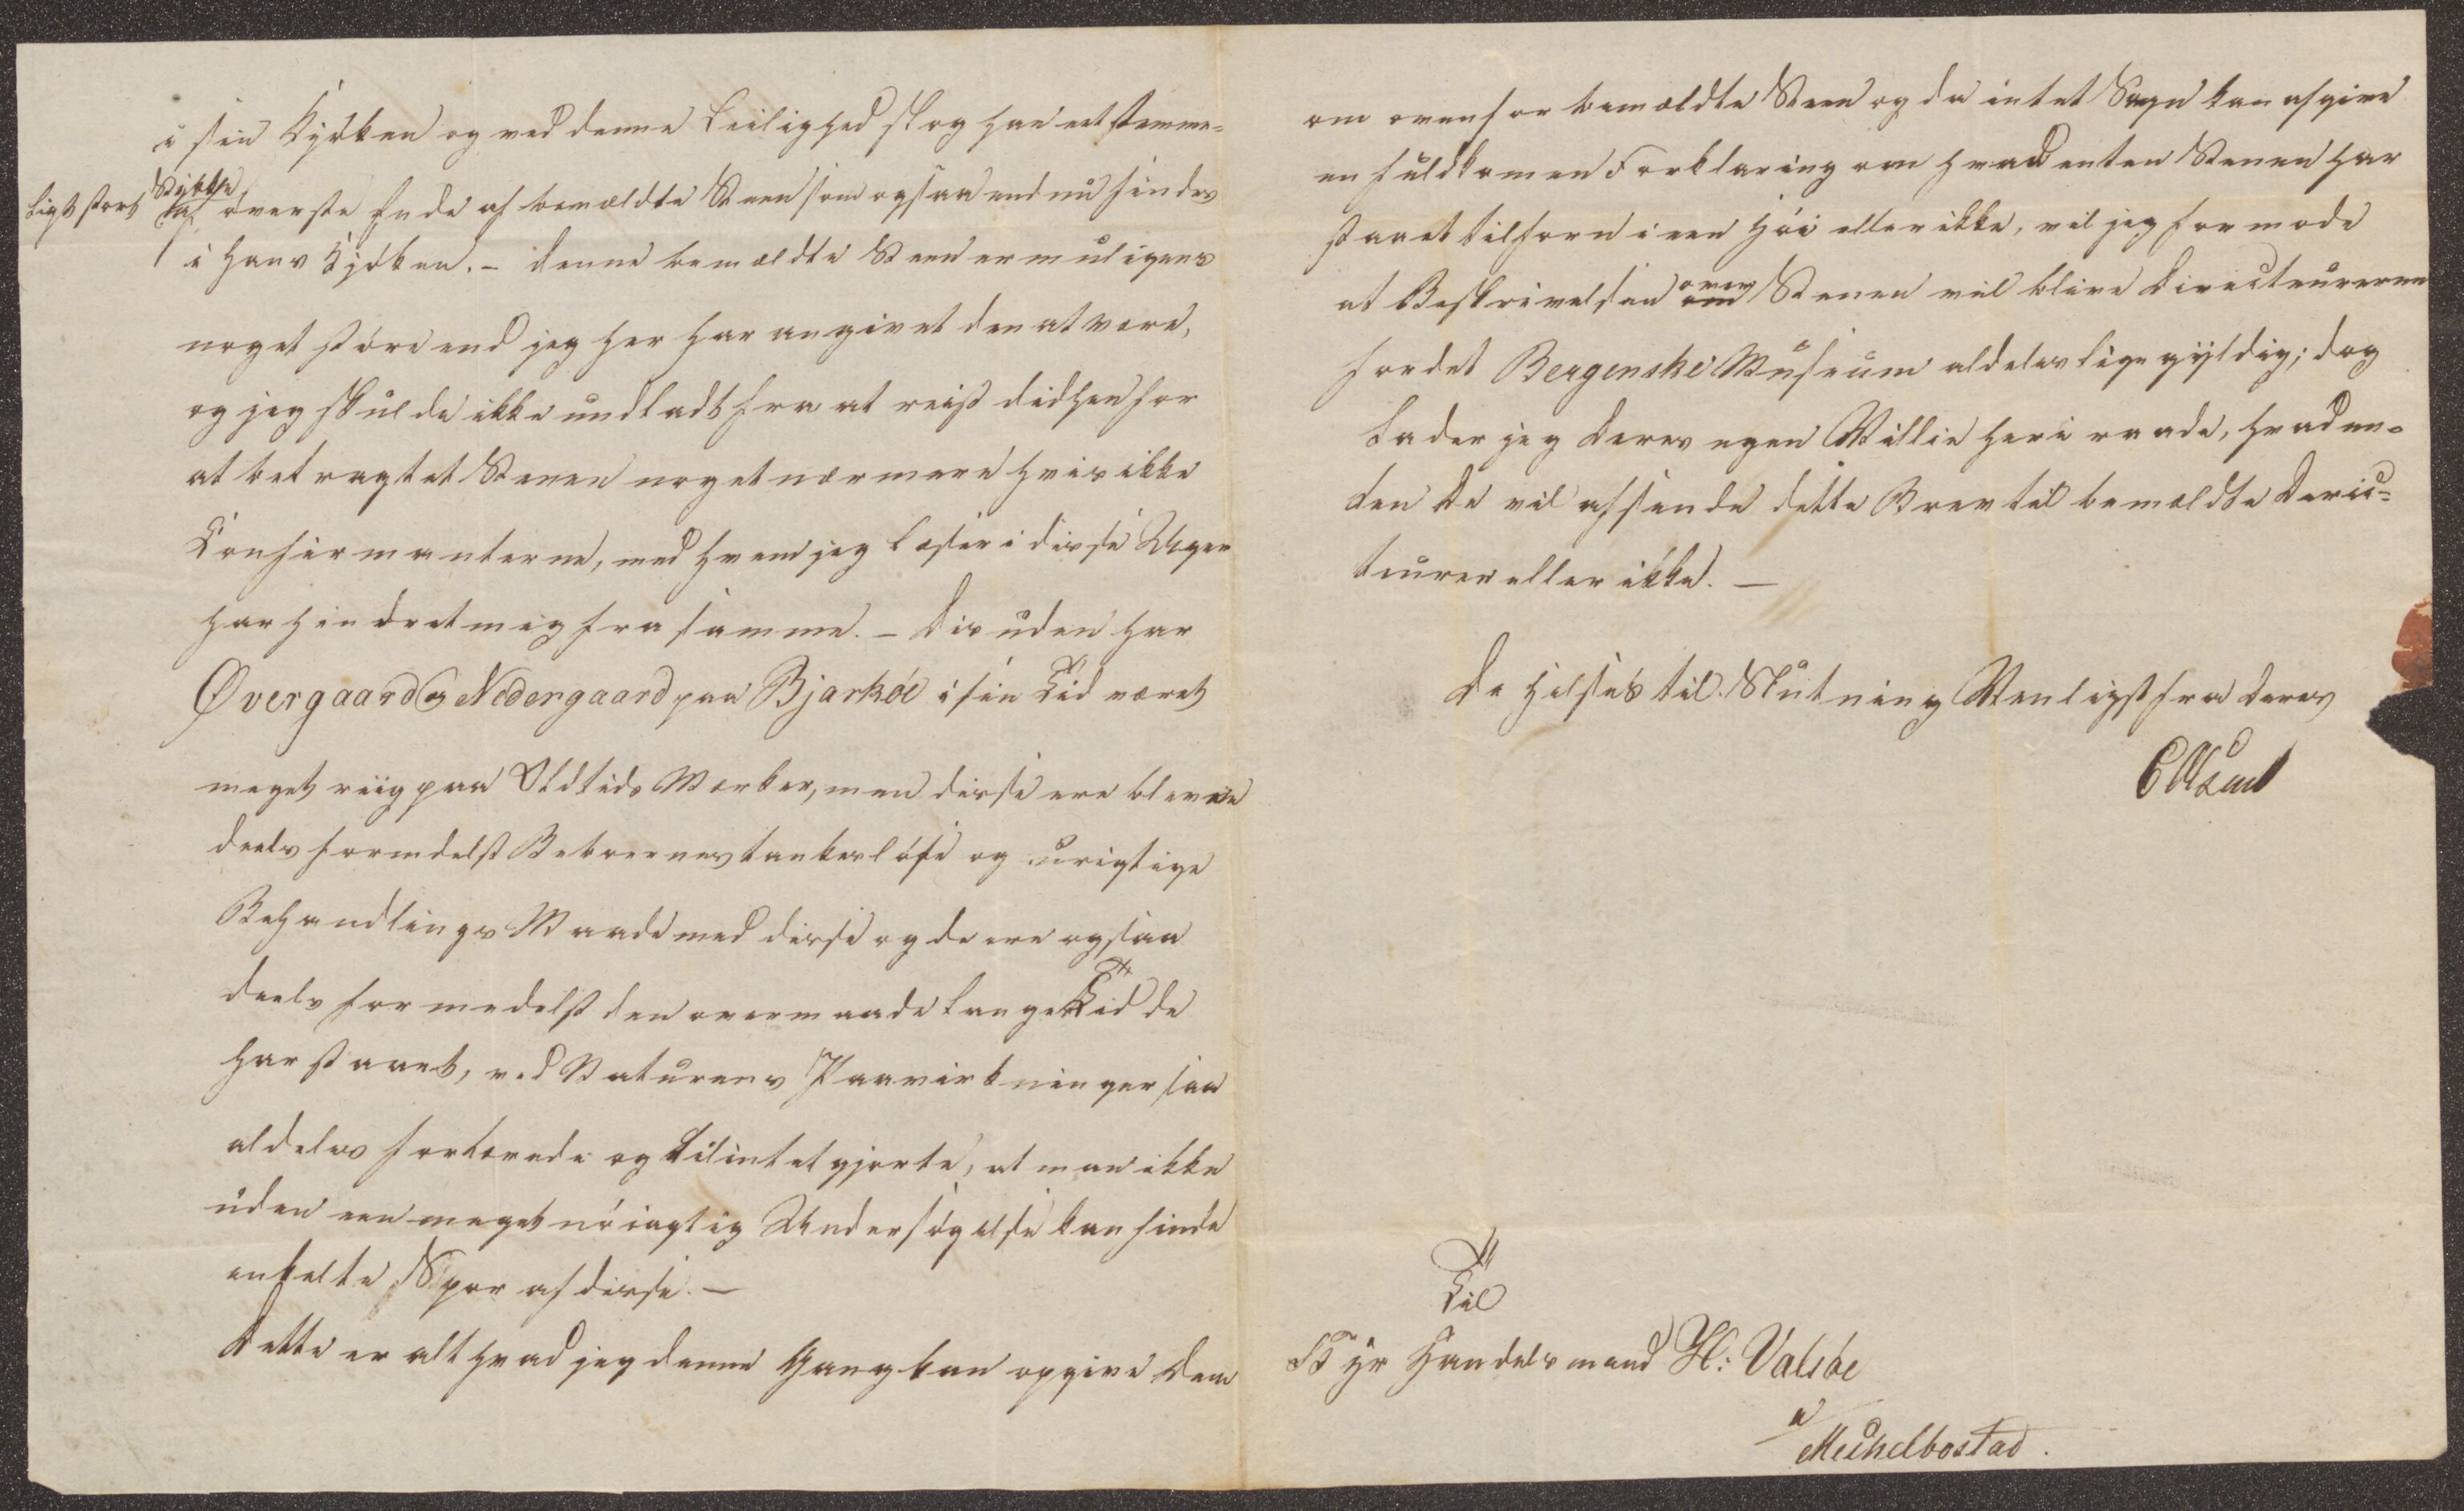 i sin Kjökken og ved denne Leilighed slog han et stemme-
ligt stort Stykke af överste Ende af bemældte Steen som ogsaa endnu findes
i hans Kjökken. – Denne bemældte Steen er muligens
noget störe end jeg her har angivet den at være,
og jeg skulde ikke undladt fra at reist didhen for
at betragtet Stenen noget nærmere hvis ikke
Confirmanterne, med hvem jeg læser i disse Uger
har hindret mig fra samme. – Desuden har
Övergaard og Nedergaard paa Bjarköe i sin Tid været
meget riig paa Oldtids Mærker, men disse ere blevne
deels formedelst Beboernes tankeslöse og urigtige
Behandlings Maade med disse og de ere ogsaa
deels formedelst den overmaade lange Tid de
har staaet, ved Naturens Paavirkninger saa
aldeles fortærede og tilintetgjorte, at man ikke
uden een meget nöiagtig Undersögelse kan finde
enkelte Spor af disse. –
Dette er alt hvad jeg denne Gang kan opgive Dem
om ovenfor bemældte Steen og da intet Sagn kan afgive
en fuldkomen Forklaring om hvad enten Stenen har
staaet tilforn i een Höi eller ikke, vil jeg formode
at Beskrivelsen over Stenen vil blive Directeurerne
for det Bergenske Museum aldeles ligegyldig; dog
lader jeg Deres egen Willie heri raade, hvad en-
ten De vil afsende dette Brev til bemældte Direc-
teurer eller ikke. –
De hilses til Slutning Venligst fra Deres
Til
Sr Handelsmand H: Valsöe
a
Mechelbostad.